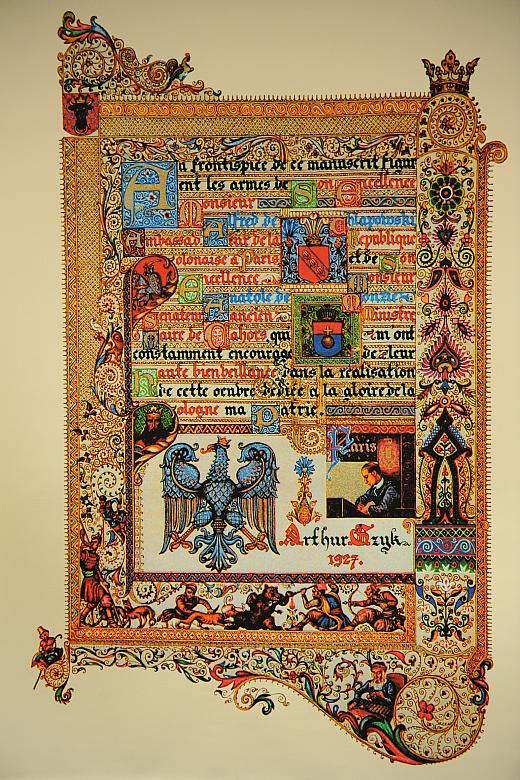 Au frontispice de ce manuscrit figur
ent les armes de Son Excellence
Monsieur
Alfred de Chlapowski
Ambassadeur de la Republique
Polonaise à Paris et de Son
Excellence Monsieur
Anatole de Monzie
Senateur Ancien Ministre
Maire de Cahors qui m'ont
constamment encouragé de leur
haute bienveillance dans la réalisation
de cette oeuvre dédiée a la gloire de la
Pologne ma Patrie.
Paris
Arthur Szyk
1927.